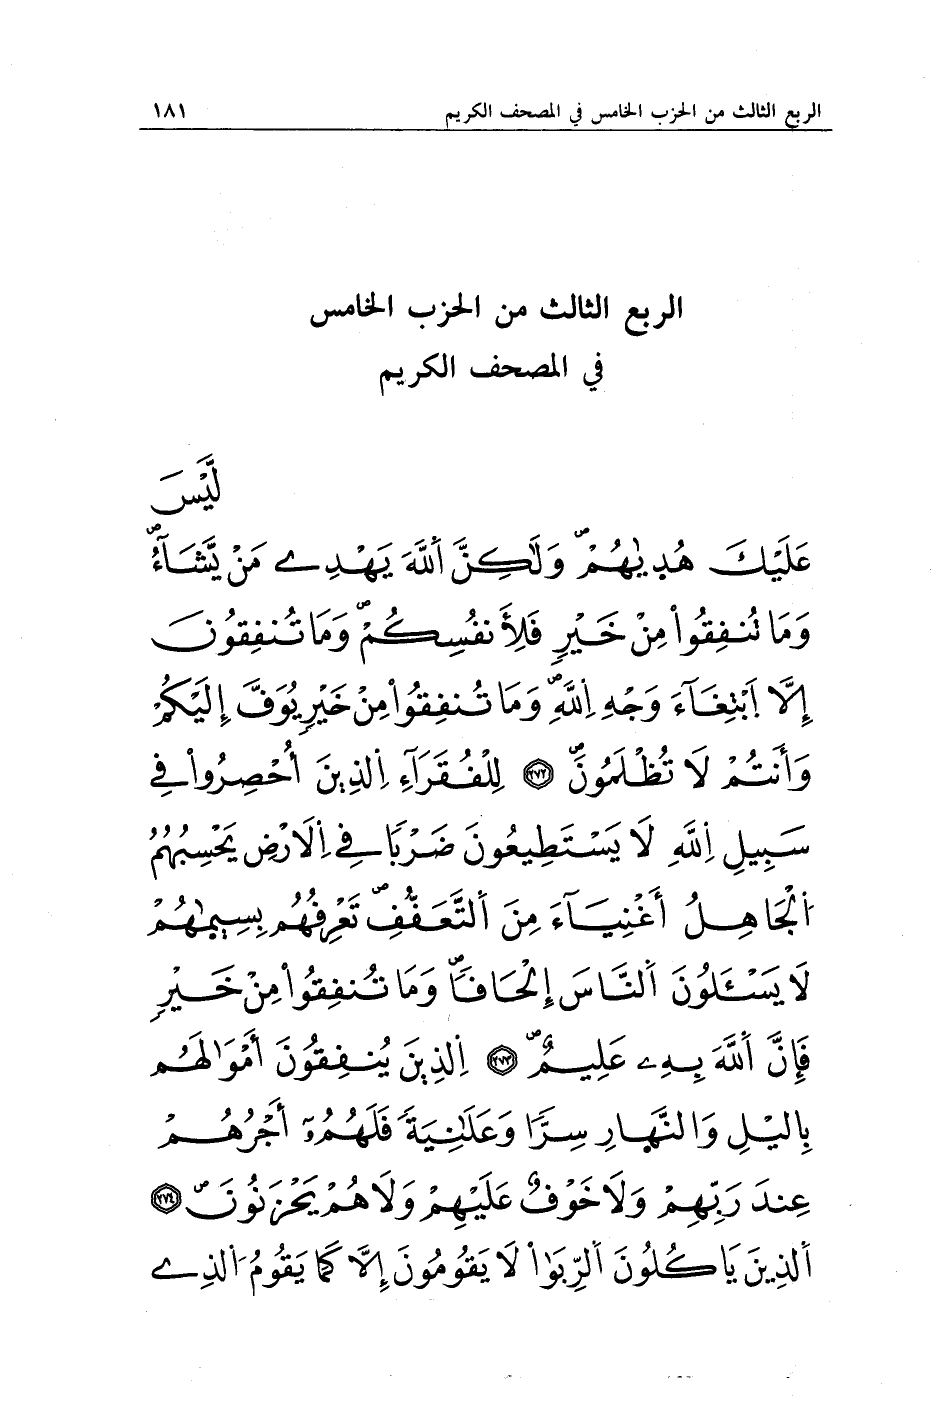 الربع الثالث من الحزب الخامس في المصحف الكريم ١٨١
الربع الثالث من الحزب الخامس
في المصحف الكريم
لَّيْسَ
عَلَيْكَ هُدٜىٰهُمْۖ وَلَٰكِنَّ اَ۬للَّهَ يَهْدِے مَنْ يَّشَآءُۖ
وَمَا تُنفِقُواْ مِنْ خَيْرٖ فَلِأَنفُسِكُمْۖ وَمَا تُنفِقُونَ
إِلَّا اَ۪بْتِغَآءَ وَجْهِ اِ۬للَّهِۖ وَمَا تُنفِقُواْ مِنْ خَيْرٖ يُوَفَّ إِلَيْكُمْ
وَأَنتُمْ لَا تُظْلَمُونَۖ ٢٧٢ لِلْفُقَرَآءِ اِ۬لذِينَ أُحْصِرُواْ فِے
سَبِيلِ اِ۬للَّهِ لَا يَسْتَطِيعُونَ ضَرْباٗ فِے اِ۬لَارْضِ يَحْسِبُهُمُ
اُ۬لْجَاهِلُ أَغْنِيَآءَ مِنَ اَ۬لتَّعَفُّفِۖ تَعْرِفُهُم بِسِيمٜىٰهُمْ
لَا يَسْـَٔلُونَ اَ۬لنَّاسَ إِلْحَافاٗۖ وَمَا تُنفِقُواْ مِنْ خَيْرٖ
فَإِنَّ اَ۬للَّهَ بِهِۦ عَلِيمٌۖ ٢٧٣ اِ۬لذِينَ يُنفِقُونَ أَمْوَٰلَهُم
بِاليْلِ وَالنَّهٜارِ سِرّاٗ وَعَلَٰنِيَةٗ فَلَهُمُۥٓ أَجْرُهُمْ
عِندَ رَبِّهِمْ وَلَا خَوْفٌ عَلَيْهِمْ وَلَا هُمْ يَحْزَنُونَۖ ٢٧٤
اَ۬لذِينَ يَاكُلُونَ اَ۬لرِّبَوٰاْ لَا يَقُومُونَ إِلَّا كَمَا يَقُومُ اُ۬لذِے